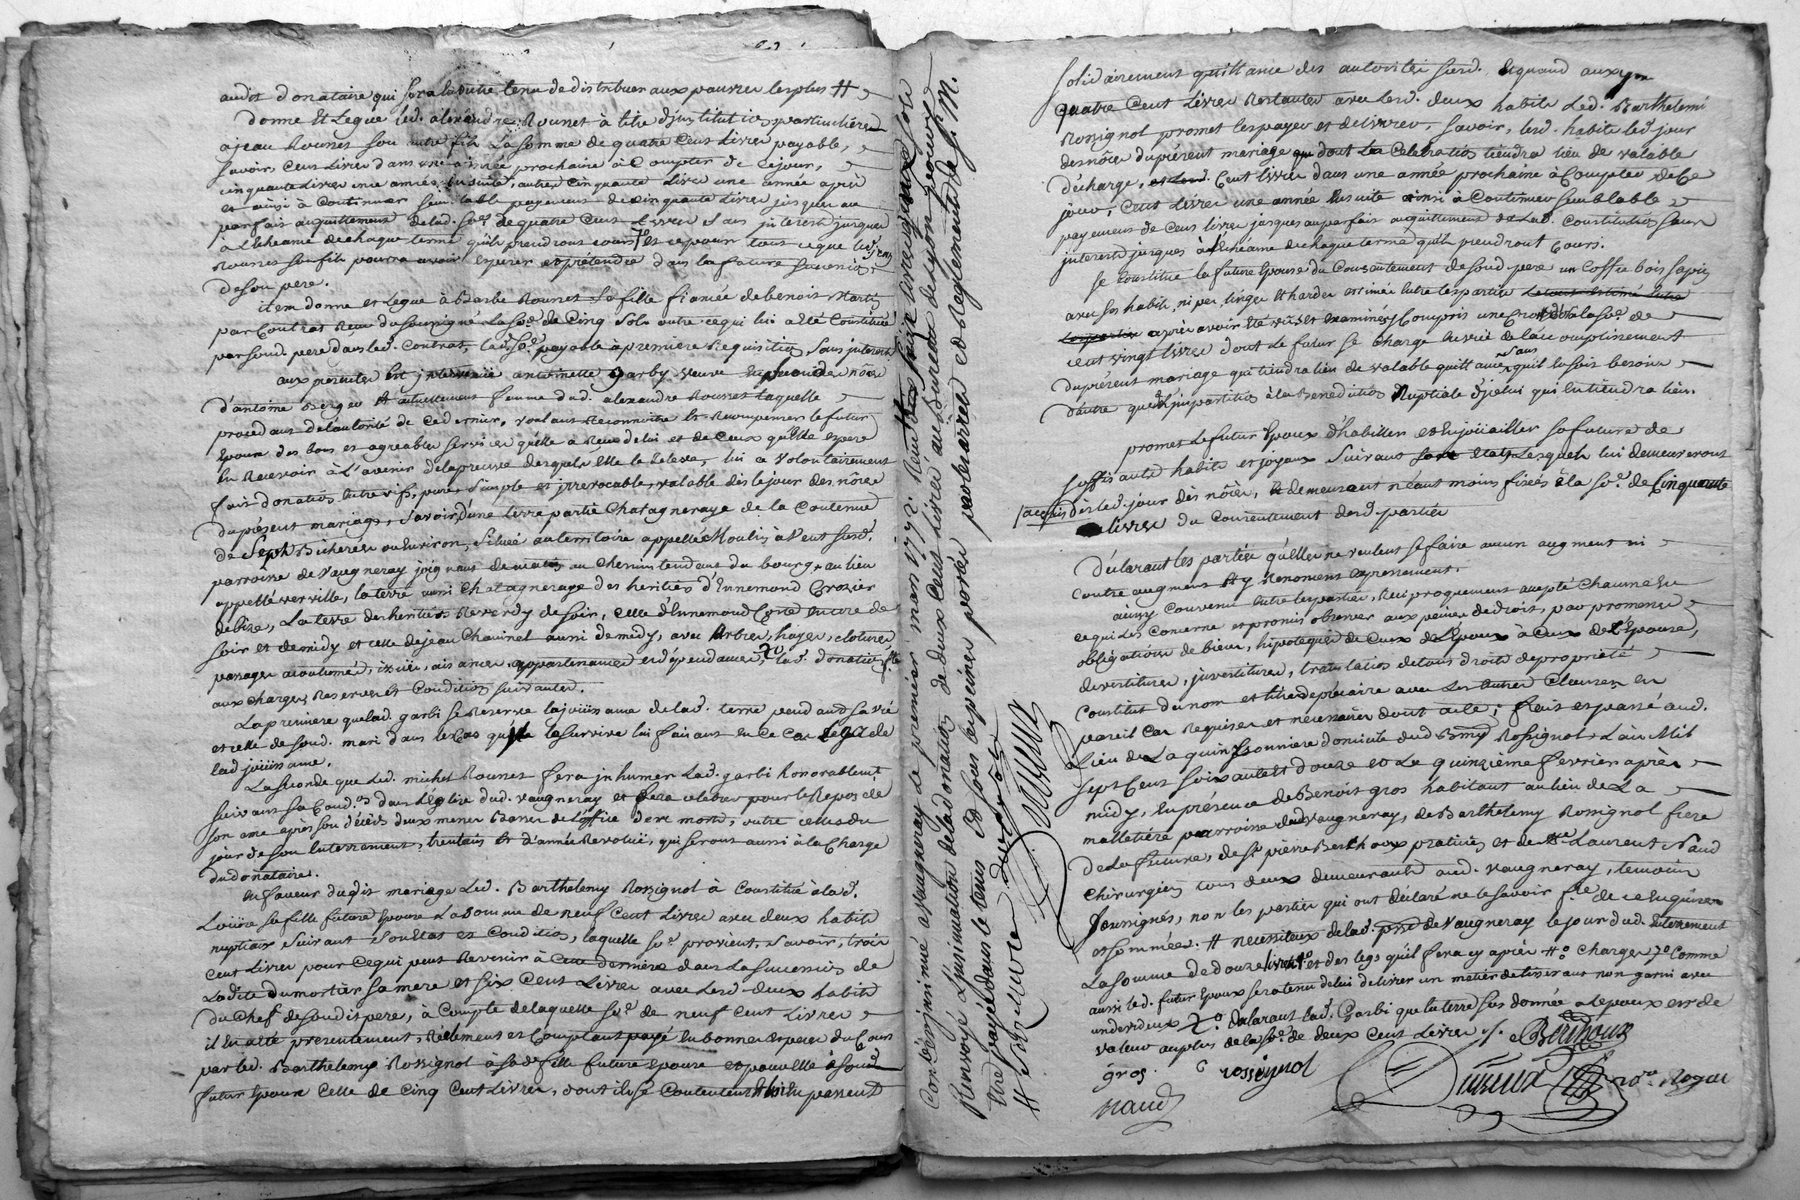 audit donataire qui sera tenu de distribuer aux pauvres les plus #
donne et legue led. alexandre Rounet à titre d'institution particulière
a jean Rounet son autre fils la somme de quatre cent Livres payable,
savoir cent Livres dans une année prochaine à Compter de ce jour,
cinquante Livres une année ensuite, autres cinquante Livres une année après
et ainsi à Continuer semblable payement de cinquante Livres jusques au
parfait acquittement de lad. so.e de quatre Cent Livres sans interest jusques
à l'échéance de chaque terme qu'ils prendront cours et ce pour tout ce que led. jean
Rounet son fils pourra avoir esperer et prétendre dans la future succession
de son pere.
item donne et legue à Barbe Rounet sa fille fiancée de benoit Martin
par Contrat Reçu du soussigné la so.e de Cinq Sols outre ce qui lui a été Constitué
par sond. pere dans led. Contrat, lad. so.e payable à premiere Requisition sans interest
aux présentes est intervenüe antoinette garby veuve en premières nôces
d'antoine Berger et actuellement femme dud. alexandre Rounet laquelle
procedant de l'autorité de ce dernier, voulant Reconnoitre et Recompenser le futur
Epoux des bons et agreables services qu'elle a Reçu de lui et de Ceux qu'elle espere
en Recevoir à l'avenir de la preuve desquels elle le Releve, lui a Volontairement
fait donation entre vifs, pure, simple et irrevocable, valable dès le jour des nôces
du présent mariage, savoir d'une terre partie Chatagneraye de la Contenue
de Sept Bicherées ou environ, Située au territoire appellé Moulin à Vent susd.
parroisse de Vaugneray joignant de matin au chemin tendant du bourg au lieu
appellé verville, la terre aussi Chatagneraye des heritiers d'Ennemond Crozier
de bize, La terre des heritiers Reverdy de soir, celle d'Ennemond Coste encore de
soir et de midy et celle de jean Chavinet aussi de midy, avec Arbres, hayes, clotures,
passages acoutumés, aisances appartenances et dépendances, lad. donation faite
aux charges Reserves et Conditions suivantes.
La premiere que lad. garbi se Reserve la joüissance de lad. terre pendant sa vie
et celle de soud. mari dans le Cas qu'il la survive lui faisant en ce Cas Legs de
lad. joüissance.
La seconde que Led. michel Rounet fera inhumer Lad. garbi honorablement
suivant sa Cond.on dans l'Eglise dud. Vaugneray et fera celebrer pour le Repos de
son ame après son décès deux messes Basses de l'office des morts, outre celles du
jour de son enterrement, trentain et d'année Revoluë, qui seront aussi à la Charge
du donataire.
en faveur du dit mariage Led. Barthelemy Rossignol à Constitué à lad.
Loüise sa fille future Epouse La somme de neuf Cent Livres avec deux habits
nuptiaux suivant son Etat et Condition, laquelle so.e provient, Savoir, trois
cent Livres pour ce qui peut Revenir à Cette derniere dans La succession de
Ladite Dumortier sa mere et six Cent Livres avec Lesd. deux habits
du Chef de soudit pere, à Compte de laquelle so.e de neuf Cent Livres
il en a été presentement, Réelement et Comptant payé en bonnes especes du Cours
par led. Barthelemy Rossignol à sad. fille future Epouse et par elle à soud.
futur Epoux celle de Cinq Cent Livres, dont ils se Contentent et en passent
Controlé insinué a Vaugneray Le premier mars 1772 Reçu treize livres
Renvoyé L'insinuation de la donation de deux Cents livres au bureau de Lyon pour y
être payée dans le tems et sous les peines portées par les arrêts et Reglements de S. M.
Durieux
solidairement quittance des autorités susd. Et quand aux
quatre Cent Livres Restantes avec Lesd. deux habits Led. Barthelemi
Rossignol promet les payer et delivrer, savoir, lesd. habits led. jour
des nôces du présent mariage dont La Celebration tiendra lieu de valable
décharge, Cent livres dans une année prochaine à Compter de Ce
jour, Cent Livres une année Ensuite ainsi à Continuer semblable
payement de Cent livres jusques au parfait acquittement de Lad. Constitution sans
interest jusques à l'échéance de chaque terme qu'ils prendront Cours.
se Constitue la future Epouse du Consentement de soud. pere un Coffre bois sapin
avec ses habits, nipes linges et hardes estimés entre les parties
après avoir été vüs et examinés y Compris une Croix d'or la so.e de
cent vingt livres dont Le futur se charge
du présent mariage qui tiendra lieu de valable quittance sans qu'il en soit besoin
d'autre que l'impartition de la Benediction Nuptiale d'icelui qui en tiendra lieu.
promet Le futur Epoux d'habiller et Enjoüailler sa future de
suffisants habits et joyaux suivant son Etat, Lesquels lui demeureront
acquis dès led. jour des nôces, et demeurant néant moins fixées à la so.e de Cinquante
livres du Consentement desd. parties
Déclarant les parties qu'elles ne veulent se faire aucun augment ni
contre augment et y Renoncent expressement.
ainsy Convenu entre les parties, Reciproquement accepté chacune en
ce qui les Concerne et promis observer aux peines de droit, par promesses
obligations de biens, hipoteques de Ceux de l'Epoux à Ceux de l'Epouse,
devestitures, investitures, translation de tous droits de proprieté
Constitut du nom et titre de précaire avec Les autres Clauses en
pareil Cas Requises et necessaires dont acte; fait et passé aud.
Lieu de La quinssonniere domicile dud. Bmy Rossignol. L'an Mil
sept Cent soixante et douze et Le quinzieme fevrier après
midy, En présence de Benoit gros habitant au lieu de La
malletiere parroisse dud. Vaugneray, de Barthelemy Rossignol frere
de La future, de S.r pierre Berthoux praticien et de S.r Laurent Naud
chirurgien tous deux demeurants aud. Vaugneray, temoins
soussignés, non les parties qui ont déclaré ne le savoir f.e de ce Enquises
et sommées. # necessiteux de lad. p.sse de Vaugneray le jour dud. Enterrement
La somme de douze livres et des legs qu'il fera cy après #o Charges 7o Comme
aussi led. futur Epoux sera tenu de lui delivrer un metier de tisserant non garni avec
un devidoir 2o declarant lad. Garbi que la terre sus donnée a l'époux est de
valeur au plus de la so.e de deux Cent Livres /. Berthoux
gros. C rossignol Durieux no.re Royal
Naud